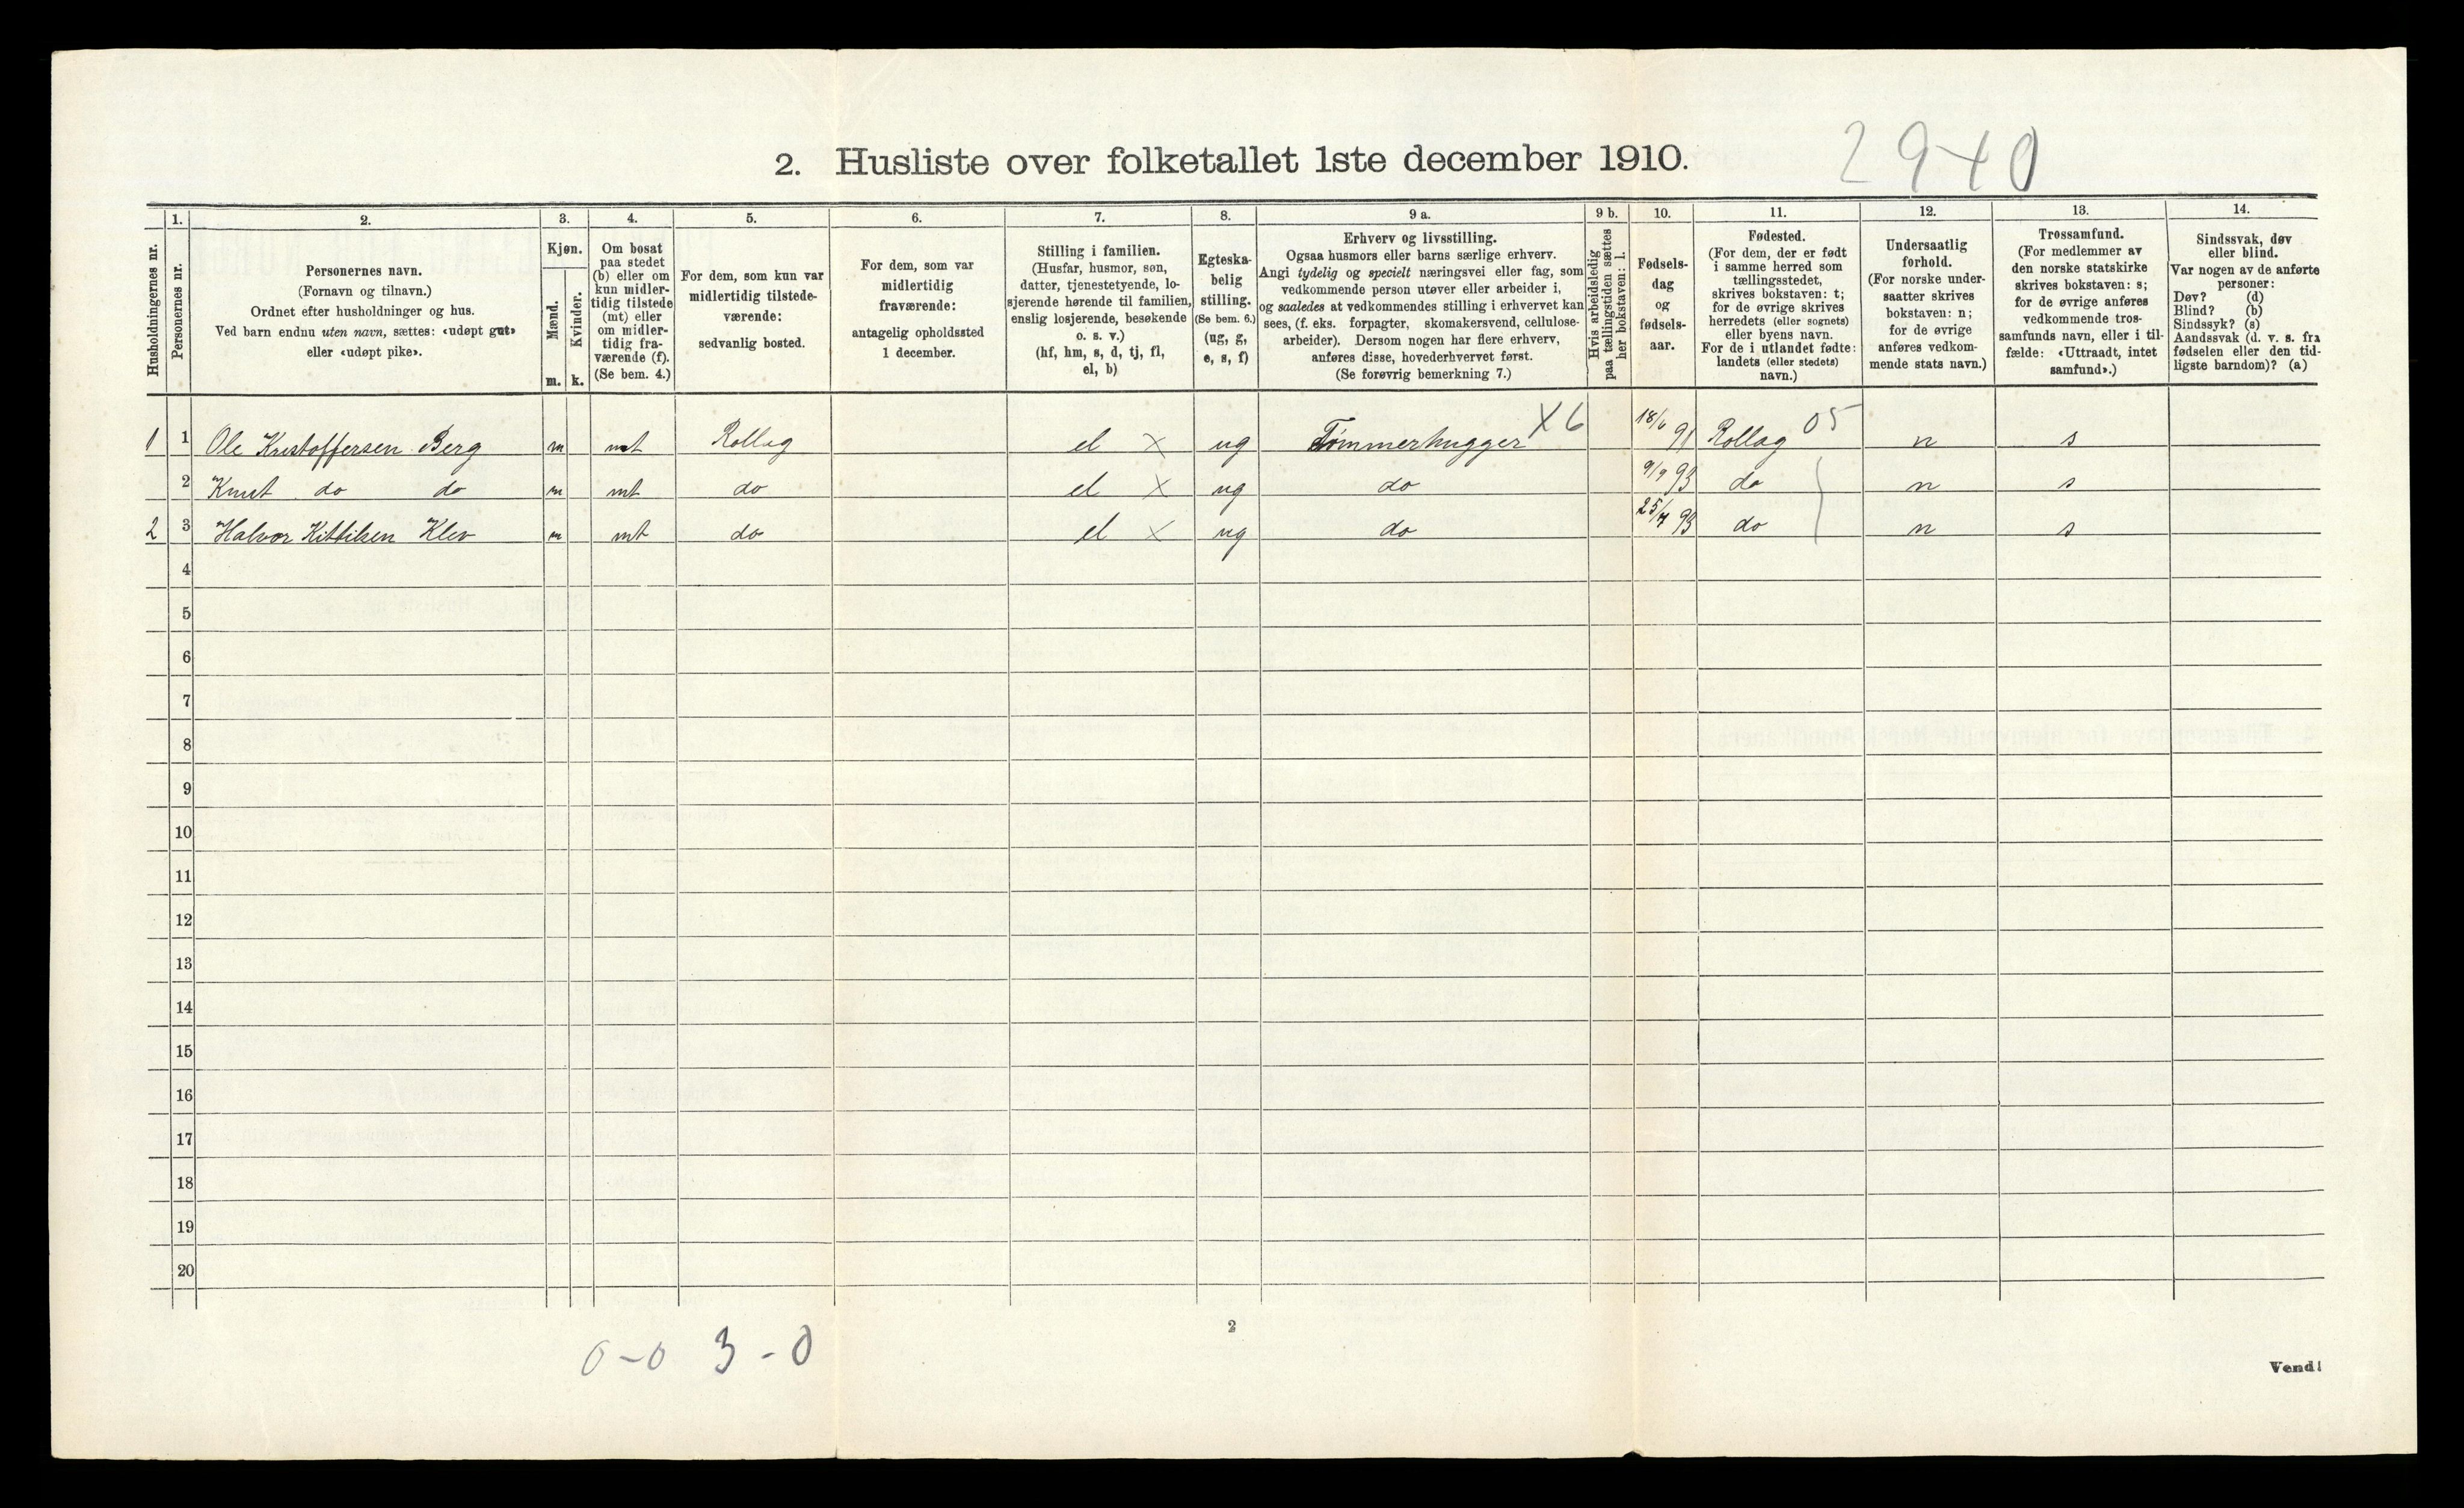 2. Husliste over folketallet 1ste december 1910.
2940
Husholdningernes nr.
1.
Personernes nr.
2.
Personernes navn.
(Fornavn og tilnavn.)
Ordnet efter husholdninger og hus.
Ved barn endnu uten navn, sættes: «udøpt gut»
eller «udøpt pike».
3.
Kjøn.
Mænd.
Kvinder.
m. k.
4.
Om bosat
paa stedet
(b) eller om
kun midler-
tidig tilstede
(mt) eller
om midler-
tidig fra-
værende (f).
(Se bem. 4.)
5.
For dem, som kun var
midlertidig tilstede-
værende:
sedvanlig bosted.
6.
For dem, som var
midlertidig
fraværende:
antagelig opholdssted
1 december.
7.
Stilling i familien.
(Husfar, husmor, søn,
datter, tjenestetyende, lo-
sjerende hørende til familien,
enslig losjerende, besøkende
o. s. v.)
(hf, hm, s, d, tj, fl,
el, b)
8.
Egteska-
belig
stilling.
(Se bem. 6.)
(ug, g,
e, s, f)
9 a.
Erhverv og livsstilling.
Ogsaa husmors eller barns særlige erhverv.
Angi tydelig og specielt næringsvei eller fag, som
vedkommende person utøver eller arbeider i,
og saaledes at vedkommendes stilling i erhvervet kan
sees, (f. eks. forpagter, skomakersvend, cellulose-
arbeider). Dersom nogen har flere erhverv,
anføres disse, hovederhvervet først.
(Se forøvrig bemerkning 7.)
9 b.
Hvis arbeidsledig
paa tællingstiden sættes
her bokstaven: l.
10.
Fødsels-
dag
og
fødsels-
aar.
11.
Fødested.
(For dem, der er født
i samme herred som
tællingsstedet,
skrives bokstaven: t;
for de øvrige skrives
herredets (eller sognets)
eller byens navn.
For de i utlandet fødte:
landets (eller stedets)
navn.)
12.
Undersaatlig
forhold.
(For norske under-
saatter skrives
bokstaven: n;
for de øvrige
anføres vedkom-
mende stats navn.)
13.
Trossamfund.
(For medlemmer av
den norske statskirke
skrives bokstaven: s;
for de øvrige anføres
vedkommende tros-
samfunds navn, eller i til-
fælde: «Uttraadt, intet
samfund».)
14.
Sindssvak, døv
eller blind.
Var nogen av de anførte
personer:
Døv? (d)
Blind? (b)
Sindssyk? (s)
Aandssvak (d. v. s. fra
fødselen eller den tid-
ligste barndom)? (a)
1 1 Ole Kristoffersen Berg m mt Rollag el X ug Tømmerhugger X6 18/6 91 Rollag 05 n s
2 Knut do do m mt do el X ug do 9/9 93 do n s
2 3 Halvor Kittilsen Klev m mt do el X ug do 25/4 93 do n s
4
5
6
7
8
9
10
11
12
13
14
15
16
17
18
19
20
0-0 3-0
2
Vend!